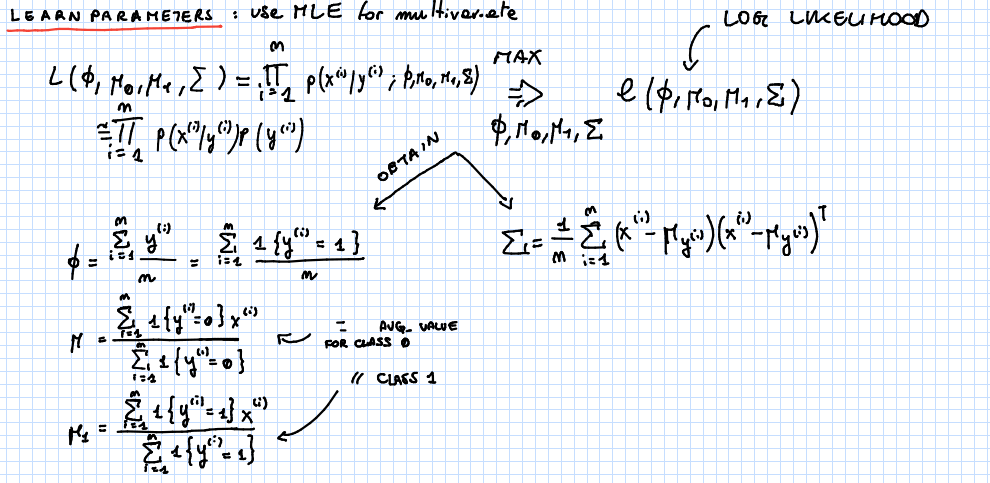 LEARN PARAMETERS : use MLE for multivariate
LOG LIKELIHOOD
L(ϕ, μ₀, μ₁, Σ) = ∏_{i=1}^{m} p(x⁽ⁱ⁾/y⁽ⁱ⁾; ϕ, μ₀, μ₁, Σ) MAX ⇒ ℓ(ϕ, μ₀, μ₁, Σ)
ϕ, μ₀, μ₁, Σ
≅ ∏_{i=1}^{m} p(x⁽ⁱ⁾/y⁽ⁱ⁾) p(y⁽ⁱ⁾)
OBTAIN
ϕ = ∑_{i=1}^{m} y⁽ⁱ⁾ / m = ∑_{i=1}^{m} 1{y⁽ⁱ⁾ = 1} / m
Σ = 1/m ∑_{i=1}^{m} (x⁽ⁱ⁾ - μ_{y⁽ⁱ⁾})(x⁽ⁱ⁾ - μ_{y⁽ⁱ⁾})ᵀ
μ = ∑_{i=1}^{m} 1{y⁽ⁱ⁾=0} x⁽ⁱ⁾ / ∑_{i=1}^{m} 1{y⁽ⁱ⁾=0}
= AVG. VALUE
FOR CLASS 0
// CLASS 1
μ₁ = ∑_{i=1}^{m} 1{y⁽ⁱ⁾=1} x⁽ⁱ⁾ / ∑_{i=1}^{m} 1{y⁽ⁱ⁾=1}